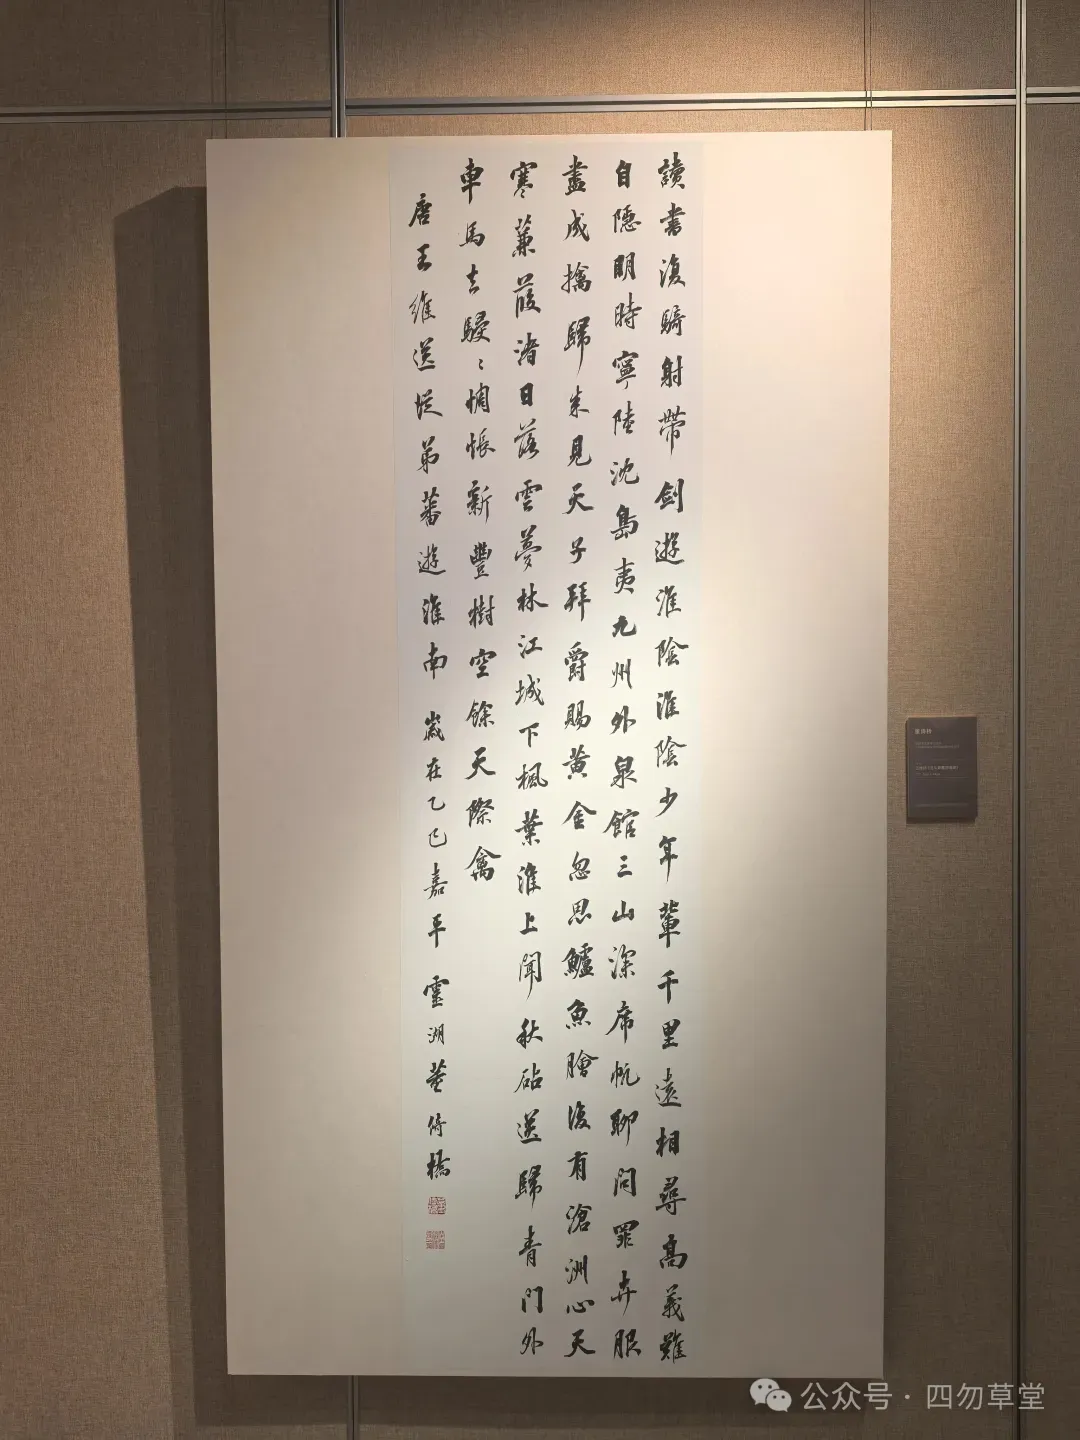 讀書復騎射帶劍遊淮陰淮陰少年輩千里遠相尋高義難
自隱明時寧陸沈島夷九州外泉館三山深席帆聊問罪卉服
盡成擒歸來見天子拜爵賜黃金忽思鱸魚膾復有滄洲心天
寒蒹葭渚日落雲夢林江城下楓葉淮上聞秋砧送歸青門外
車馬去駸〻惆悵新豐樹空餘天際禽
唐王維送從弟蕃遊淮南 歲在乙巳嘉平 靈湖董倚橋
公众号·四勿草堂